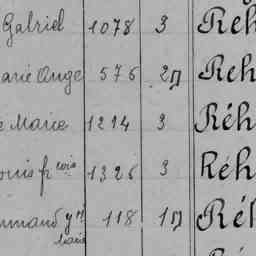 Gabriel 1078 3 Réh
arie Ange 576 2D Reh
e Marie 1214 3 Réh
ouis fcois 1326 3 Réh
rmand 118 1D Réh